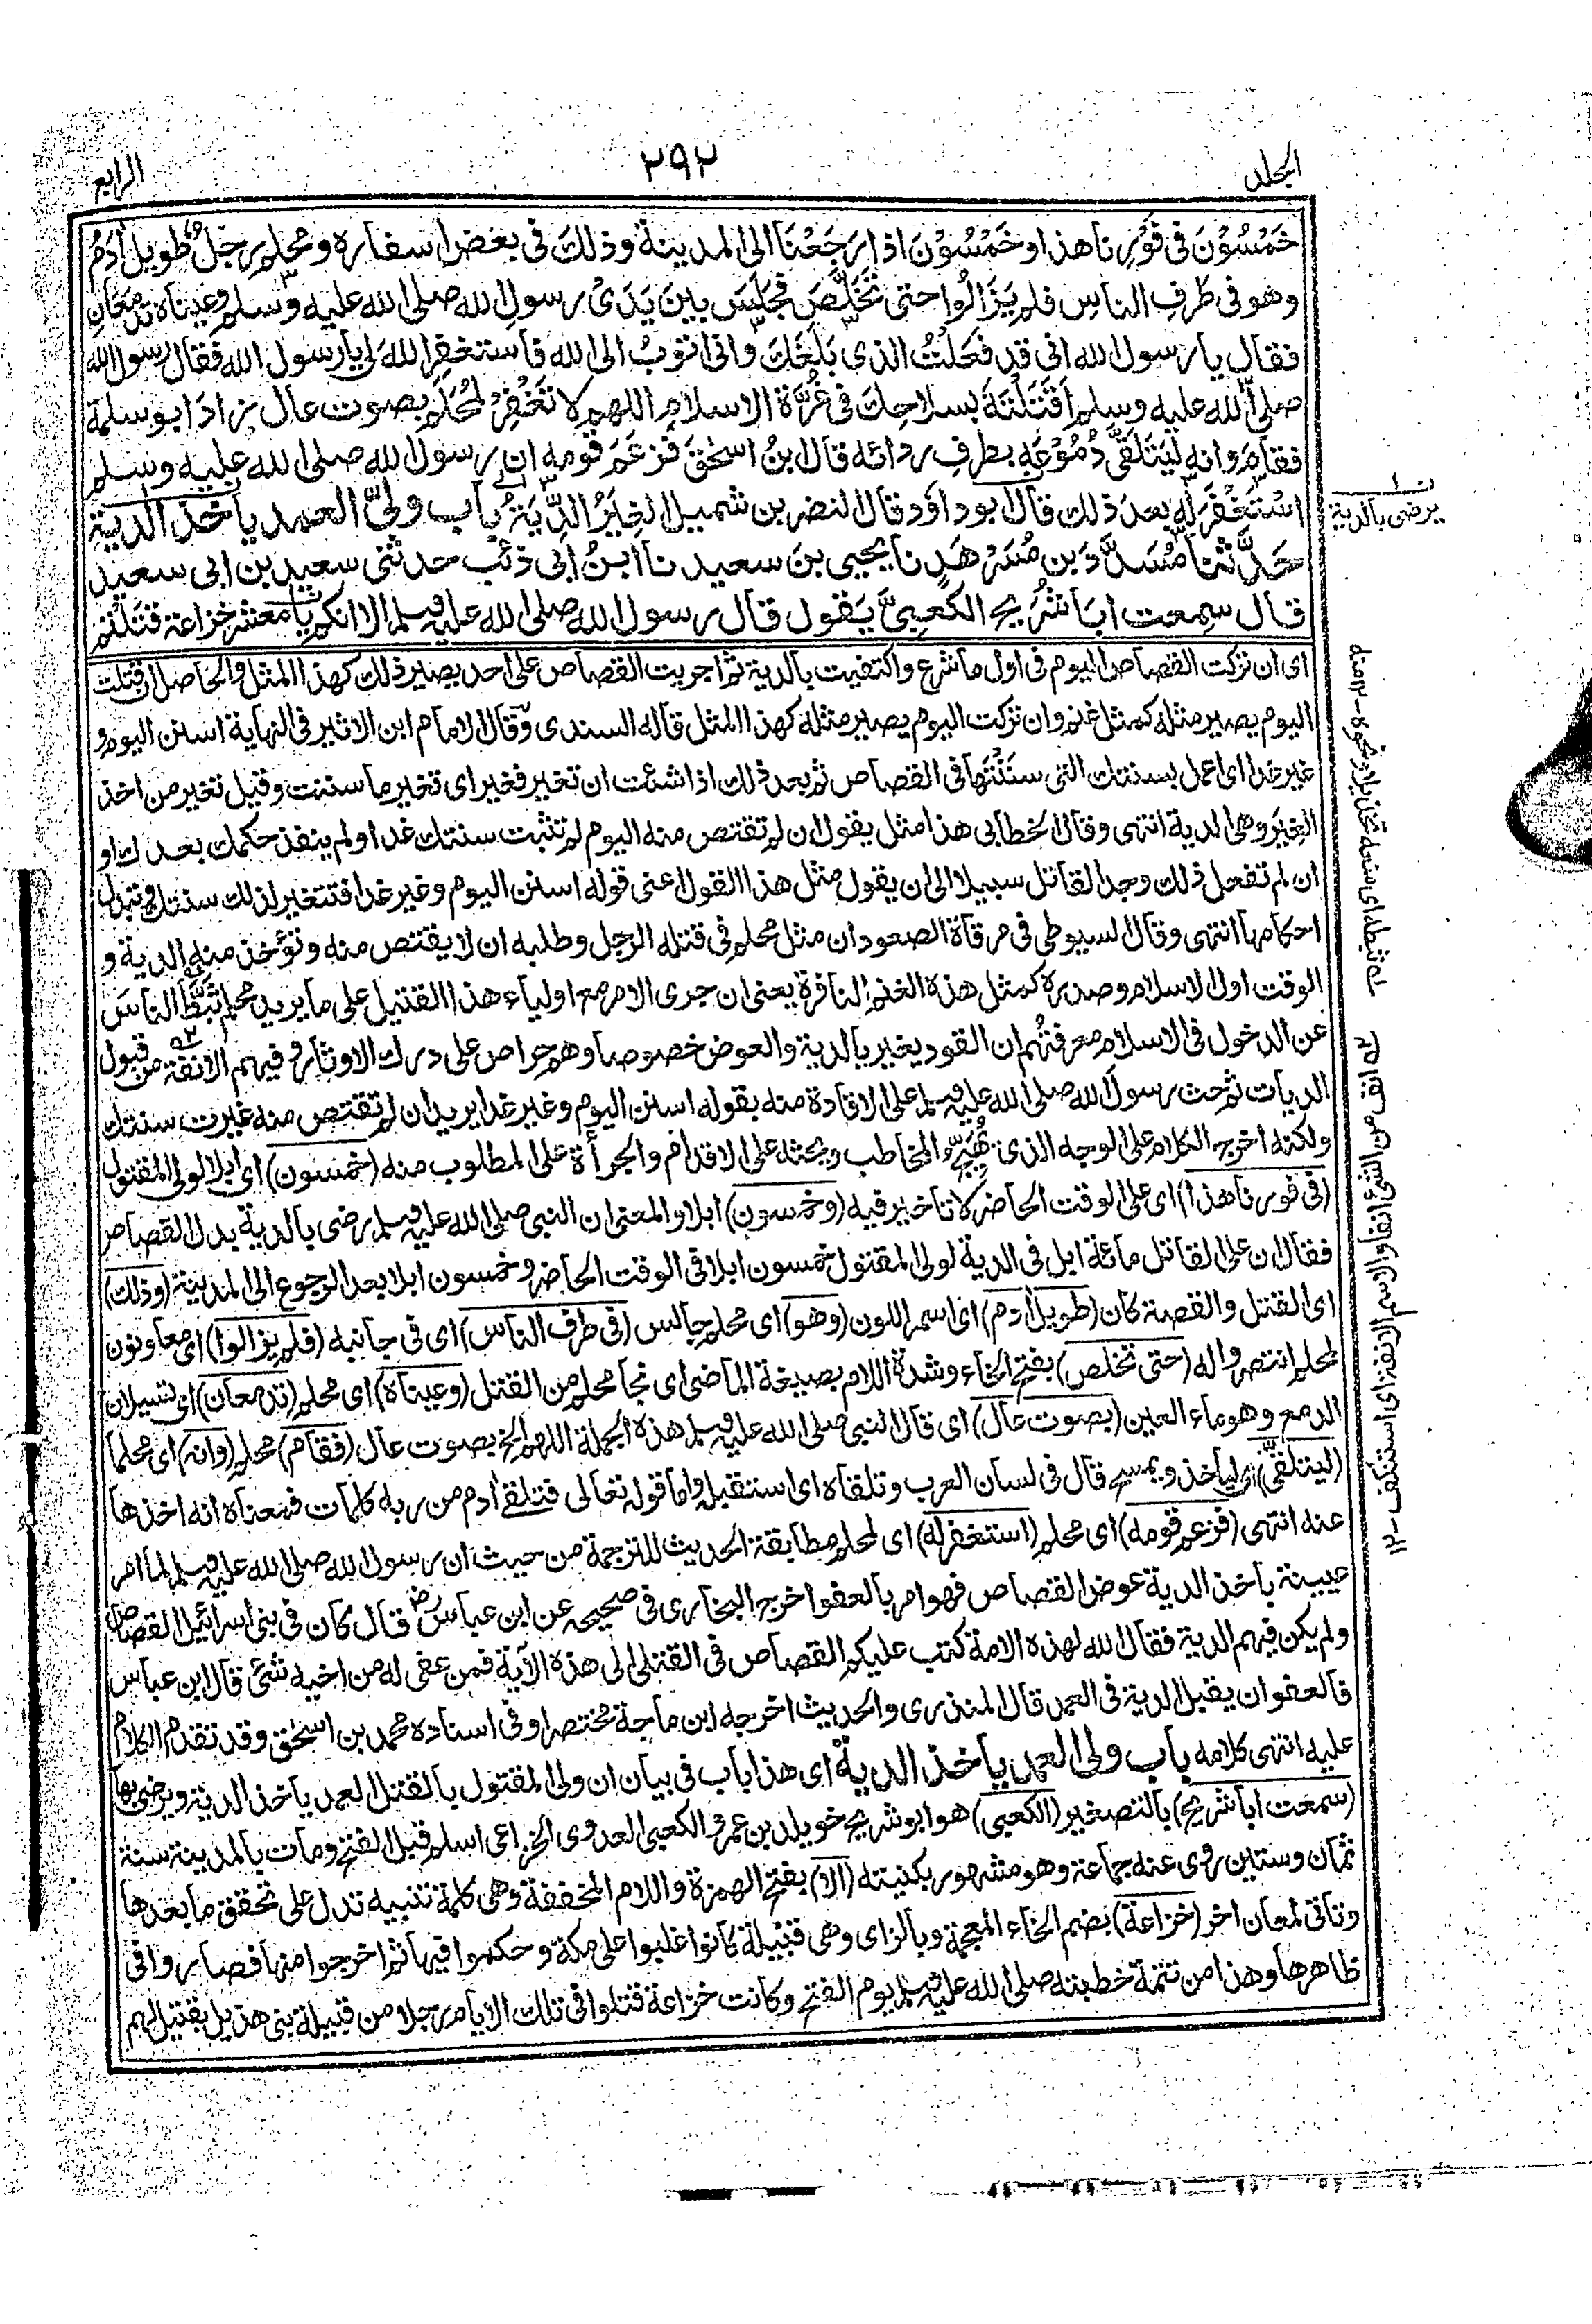 المجلد
٢٩٢
الرابع
خَمْسُوْنَ فى فَوْرِنا هذا وخَمْسُوْنَ اذا رَجَعْنَا الى المدينة وذلكَ فى بعض اسفاره ومحلم رجلٌ طويل آدَمُ
وهو فى طَرفِ الناسِ فلم يَزَالُوا حتى تَخَلَّصَ فجَلَسَ بينَ يَدَىْ رسولِ الله صلى الله عليه وسلم وعيناه تدمَعانِ
فقال يا رسول الله انى قد فَعَلْتُ الذى بَلَغَكَ وانى اتوبُ الى الله فاستغفِرِ اللهَ لى يا رسول الله فقال رسول الله
صلى الله عليه وسلم اَقَتَلْتَهُ بسلاحِكَ فى غُرَّة الاسلام اللهم لا تَغْفِرْ لمُحَلِّمٍ بصوت عال زادَ ابو سلمة
فقام وانه ليَتَلَقَّى دُمُوْعَه بطرفِ ردائه قال ابنُ اسحٰقَ فزعَمَ قومه ان رسول الله صلى الله عليه وسلم
اسْتَغْفَرَ له بعدَ ذلك قال ابو داؤد قال النضر بن شميل الغِيَرُ الدِّيَةُ باب ولىِّ العمد ياخذ الدية
حَدَّثنا مُسَدَّدَ بن مُسَرْهَدٍ نا يحيى بنَ سعيد نا ابنُ ابى ذئب حدثنى سعيد بن ابى سعيد
قال سمعت ابا شُرَيح الكعبىَّ يَقول قال رسول الله صلى الله عليه وسلم الا انكم يا معشر خزاعة قتلتم
اى ان تركت القصاص اليوم فى اول ما شرع واكتفيت بالدية ثم اجريت القصاص على احد يصير ذلك كهذا المثل والحاصل ان قتلت
اليوم يصير مثله كمثل غنم وان تركت اليوم يصير مثله كهذا المثل قاله السندى وقال الامام ابن الاثير فى النهاية اسنن اليوم و
غير غدا اى اعمل بسنتك التى سننتها فى القصاص ثم بعد ذلك اذا شئت ان تغير فغير اى تغير ما سننت وقيل تغير من اخذ
الغِيَر وهى الدية انتهى وقال الخطابى هذا مثل يقول ان لم تقتص منه اليوم لم تثبت سنتك غدا ولم ينفذ حكمك بعدك او
ان لم تفعل ذلك وجد القاتل سبيلا الى ان يقول مثل هذا القول اعنى قوله اسنن اليوم وغير غدا فتتغير لذلك سنتك وتبدل
احكامها انتهى وقال السيوطى فى مرقاة الصعود ان مثل محلم فى قتله الرجل وطلبه ان لا يقتص منه وتؤخذ منه الدية و
الوقت اول الاسلام وصدره كمثل هذه الغنم النافرة يعنى ان جرى الامر مع اولياء هذا القتيل على ما يريد محلم ثَبَّطَ الناسَ
عن الدخول فى الاسلام معرفتُهم ان القود يغير بالدية والعوض خصوصا وهم حراص على درك الاوثار وفيهم الانفة من قبول
الديات ثم حث رسولَ الله صلى الله عليه وسلم على الاقادة منه بقوله اسنن اليوم وغير غدا يريد ان لم تقتص منه غيرت سنتك
ولكنه اخرج الكلام على الوجه الذى يُهَيِّجُ المخاطب ويحثه على الاقدام والجرأة على المطلوب منه (خمسون) اى ابلا لولى المقتول
(فى فورنا هذا) اى على الوقت الحاضر لا تاخير فيه (وخمسون) ابلا والمعنى ان النبى صلى الله عليه وسلم رضى بالدية بدل القصاص
فقال ان على القاتل مائة ابل فى الدية لولى المقتول خمسون ابلا فى الوقت الحاضر وخمسون ابلا بعد الرجوع الى المدينة (وذلك)
اى القتل والقصة كان (طويل آدم) اى اسمر اللون (وهو) اى محلم جالس (فى طرف الناس) اى فى جانبه (فلم يزالوا) اى معاونون
لمحلم انتصروا له (حتى تخلص) بفتح الخاء وشدة اللام بصيغة الماضى اى نجا محلم من القتل (وعيناه) اى محلم (تدمعان) اى تسيلان
الدمع وهو ماء العين (بصوت عال) اى قال النبى صلى الله عليه وسلم هذه الجملة اللهم الخ بصوت عال (فقام) محلم (وانه) اى محلما
(ليتلقى) اى لياخذ ويمسح قال فى لسان العرب وتلقاه اى استقبله واما قوله تعالى فتلقى آدم من ربه كلمات فمعناه انه اخذها
عنه انتهى (فزعم قومه) اى محلم (استغفر له) اى لمحلم مطابقة الحديث للترجمة من حيث ان رسول الله صلى الله عليه وسلم لما امر
عيينة باخذ الدية عوض القصاص فهو امر بالعفو اخرج البخارى فى صحيحه عن ابن عباس رض قال كان فى بنى اسرائيل القصاص
ولم يكن فيهم الدية فقال الله لهذه الامة كتب عليكم القصاص فى القتلى الى هذه الآية فمن عفى له من اخيه شئ قال ابن عباس
فالعفو ان يقبل الدية فى العمد قال المنذرى والحديث اخرجه ابن ماجة مختصرا وفى اسناده محمد بن اسحٰق وقد تقدم الكلام
عليه انتهى كلامه باب ولى العمد ياخذ الدية اى هذا باب فى بيان ان ولى المقتول بالقتل العمد ياخذ الدية ويرضى بها
(سمعت ابا شريح) بالتصغير (الكعبى) هو ابو شريح خويلد بن عمرو الكعبى العدوى الخزاعى اسلم قبل الفتح ومات بالمدينة سنة
ثمان وستين روى عنه جماعة وهو مشهور بكنيته (الا) بفتح الهمزة واللام المخففة وهى كلمة تنبيه تدل على تحقق ما بعدها
وتاتى لمعان اخر (خزاعة) بضم الخاء المعجمة وبالزاى وهى قبيلة كانوا غلبوا على مكة وحكموا فيها ثم اخرجوا منها فصاروا فى
ظاهرها وهذا من تتمة خطبته صلى الله عليه وسلم يوم الفتح وكانت خزاعة قتلوا فى تلك الايام رجلا من قبيلة بنى هذيل بقتيل لهم
يرضى بالدية